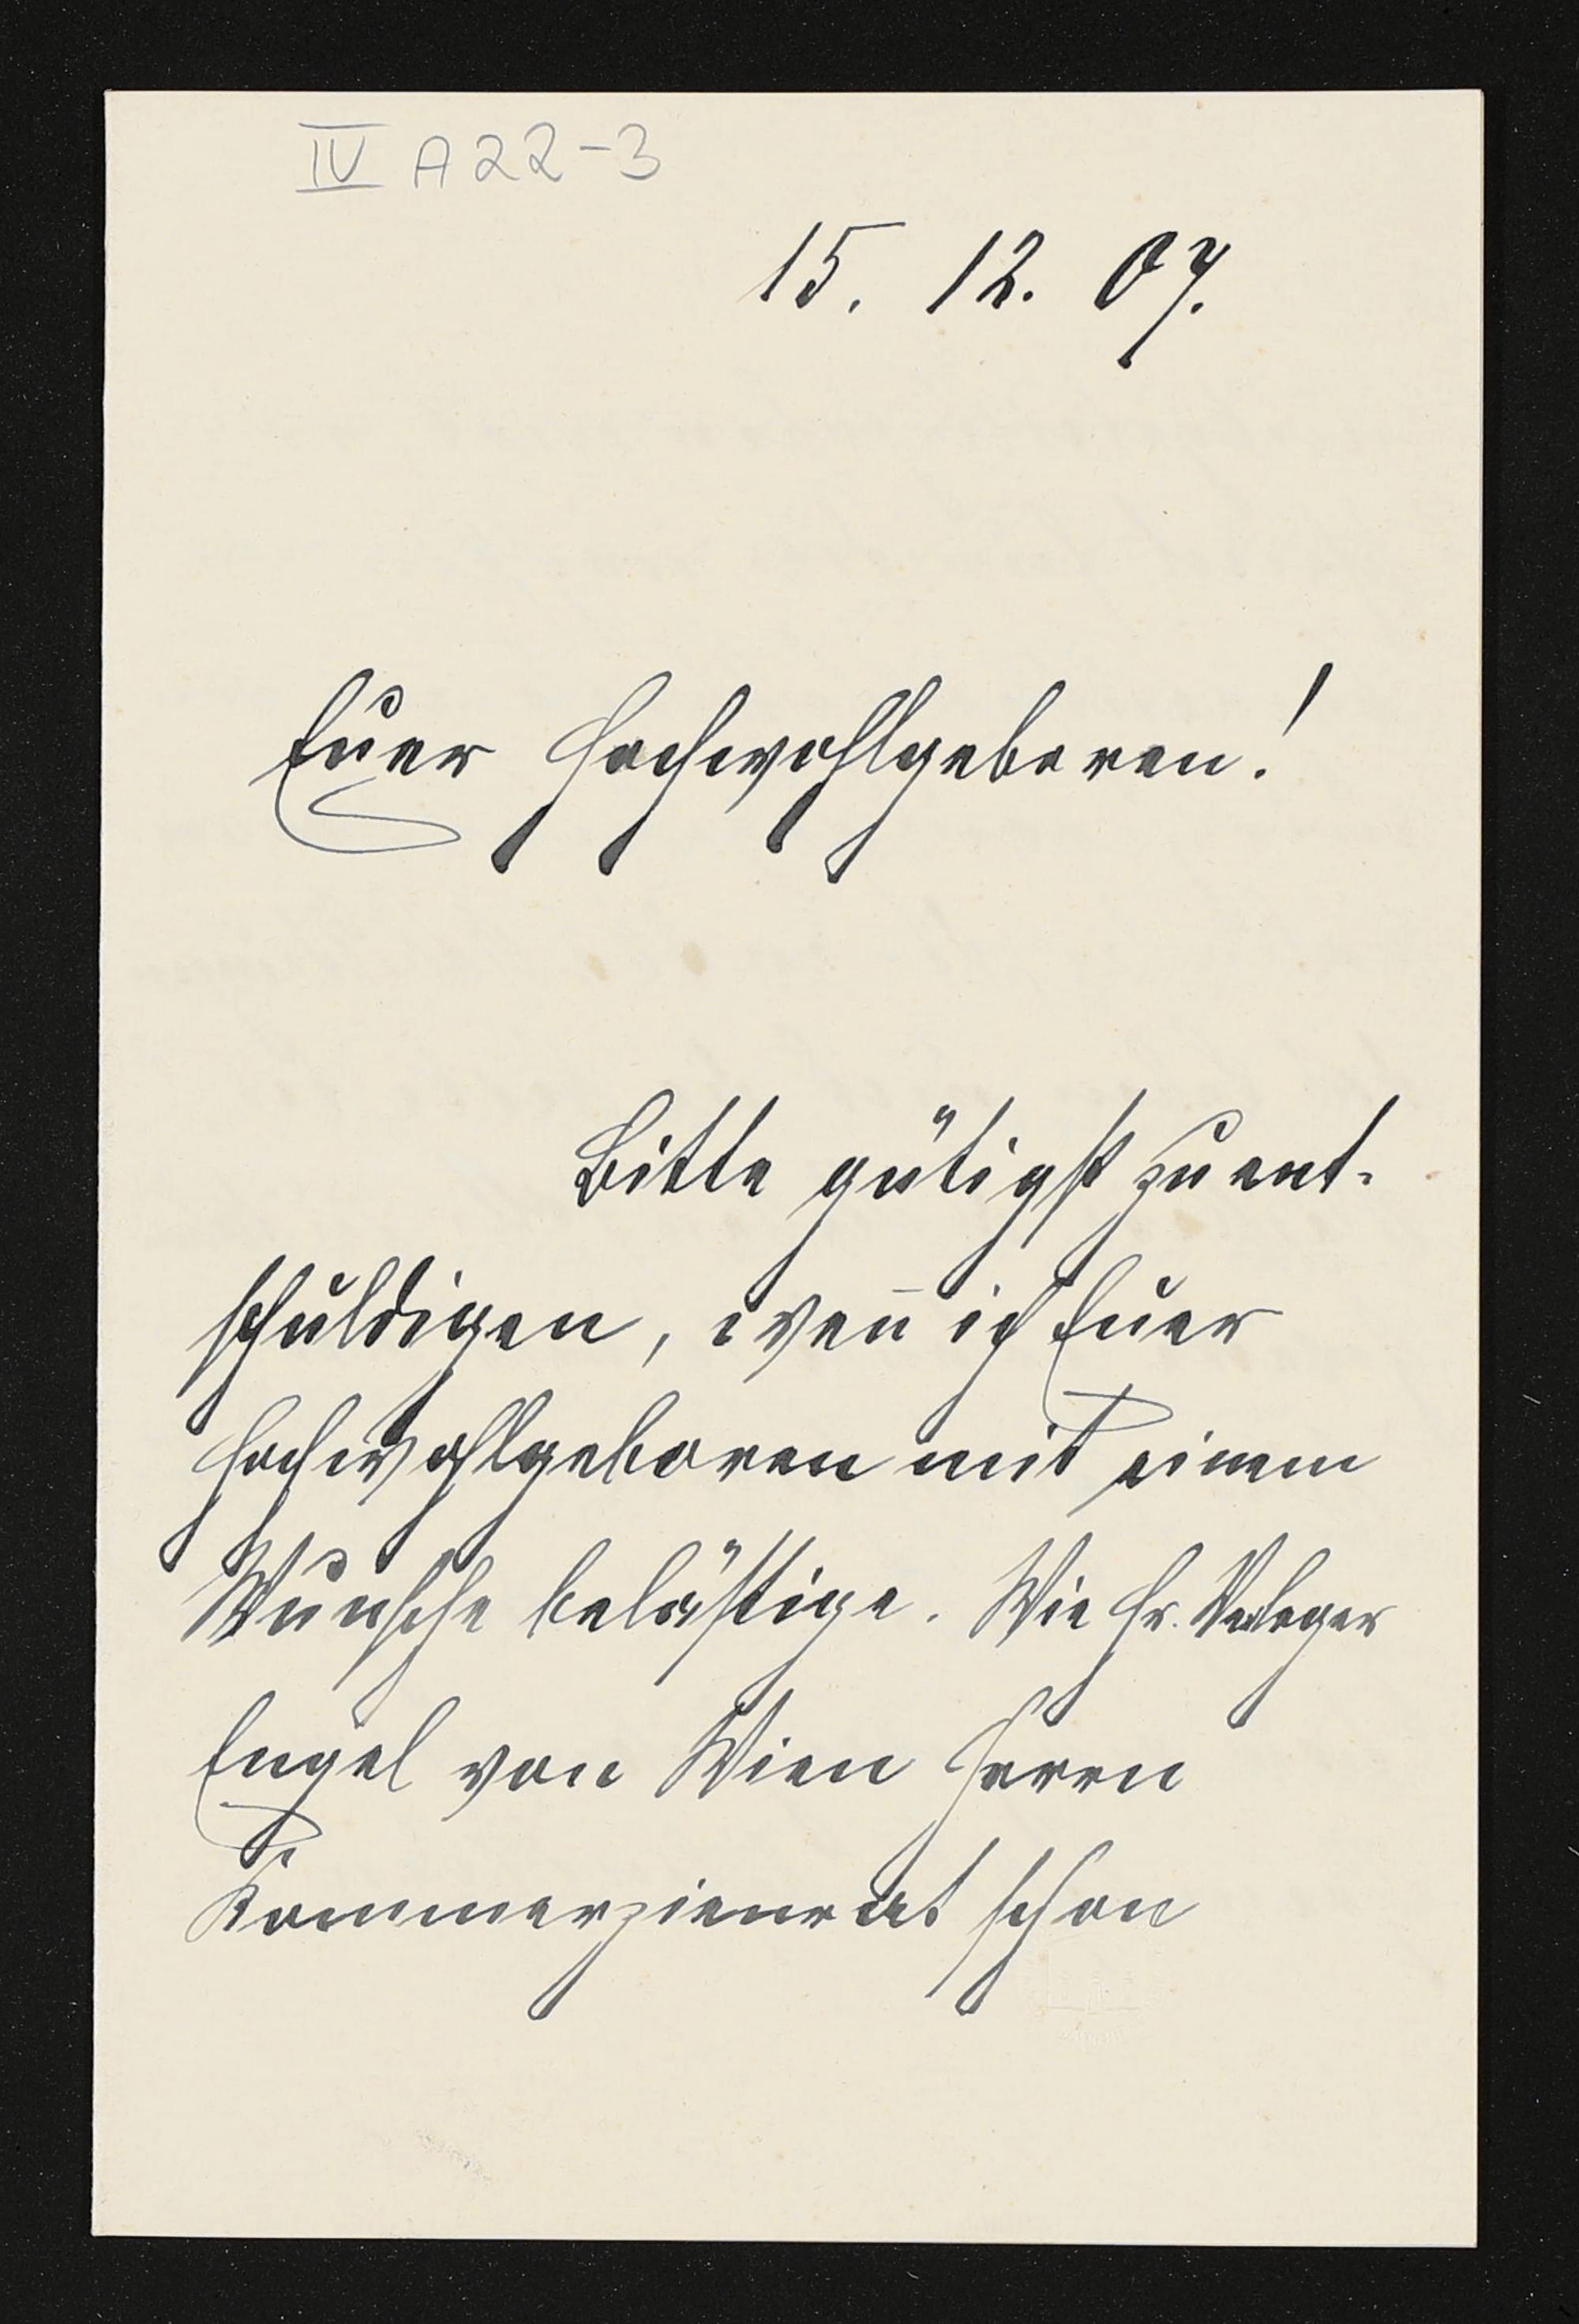 IV A22-3
15. 12. 07.
Euer Hochwohlgeboren!
Bitte gütigst zu ent-
schuldigen, wen̄ ich Euer
Hochwohlgeboren mit einem
Wunsche belästige. Wie Hr. Verleger
Engel von Wien Herrn
Kommerzienrat schon